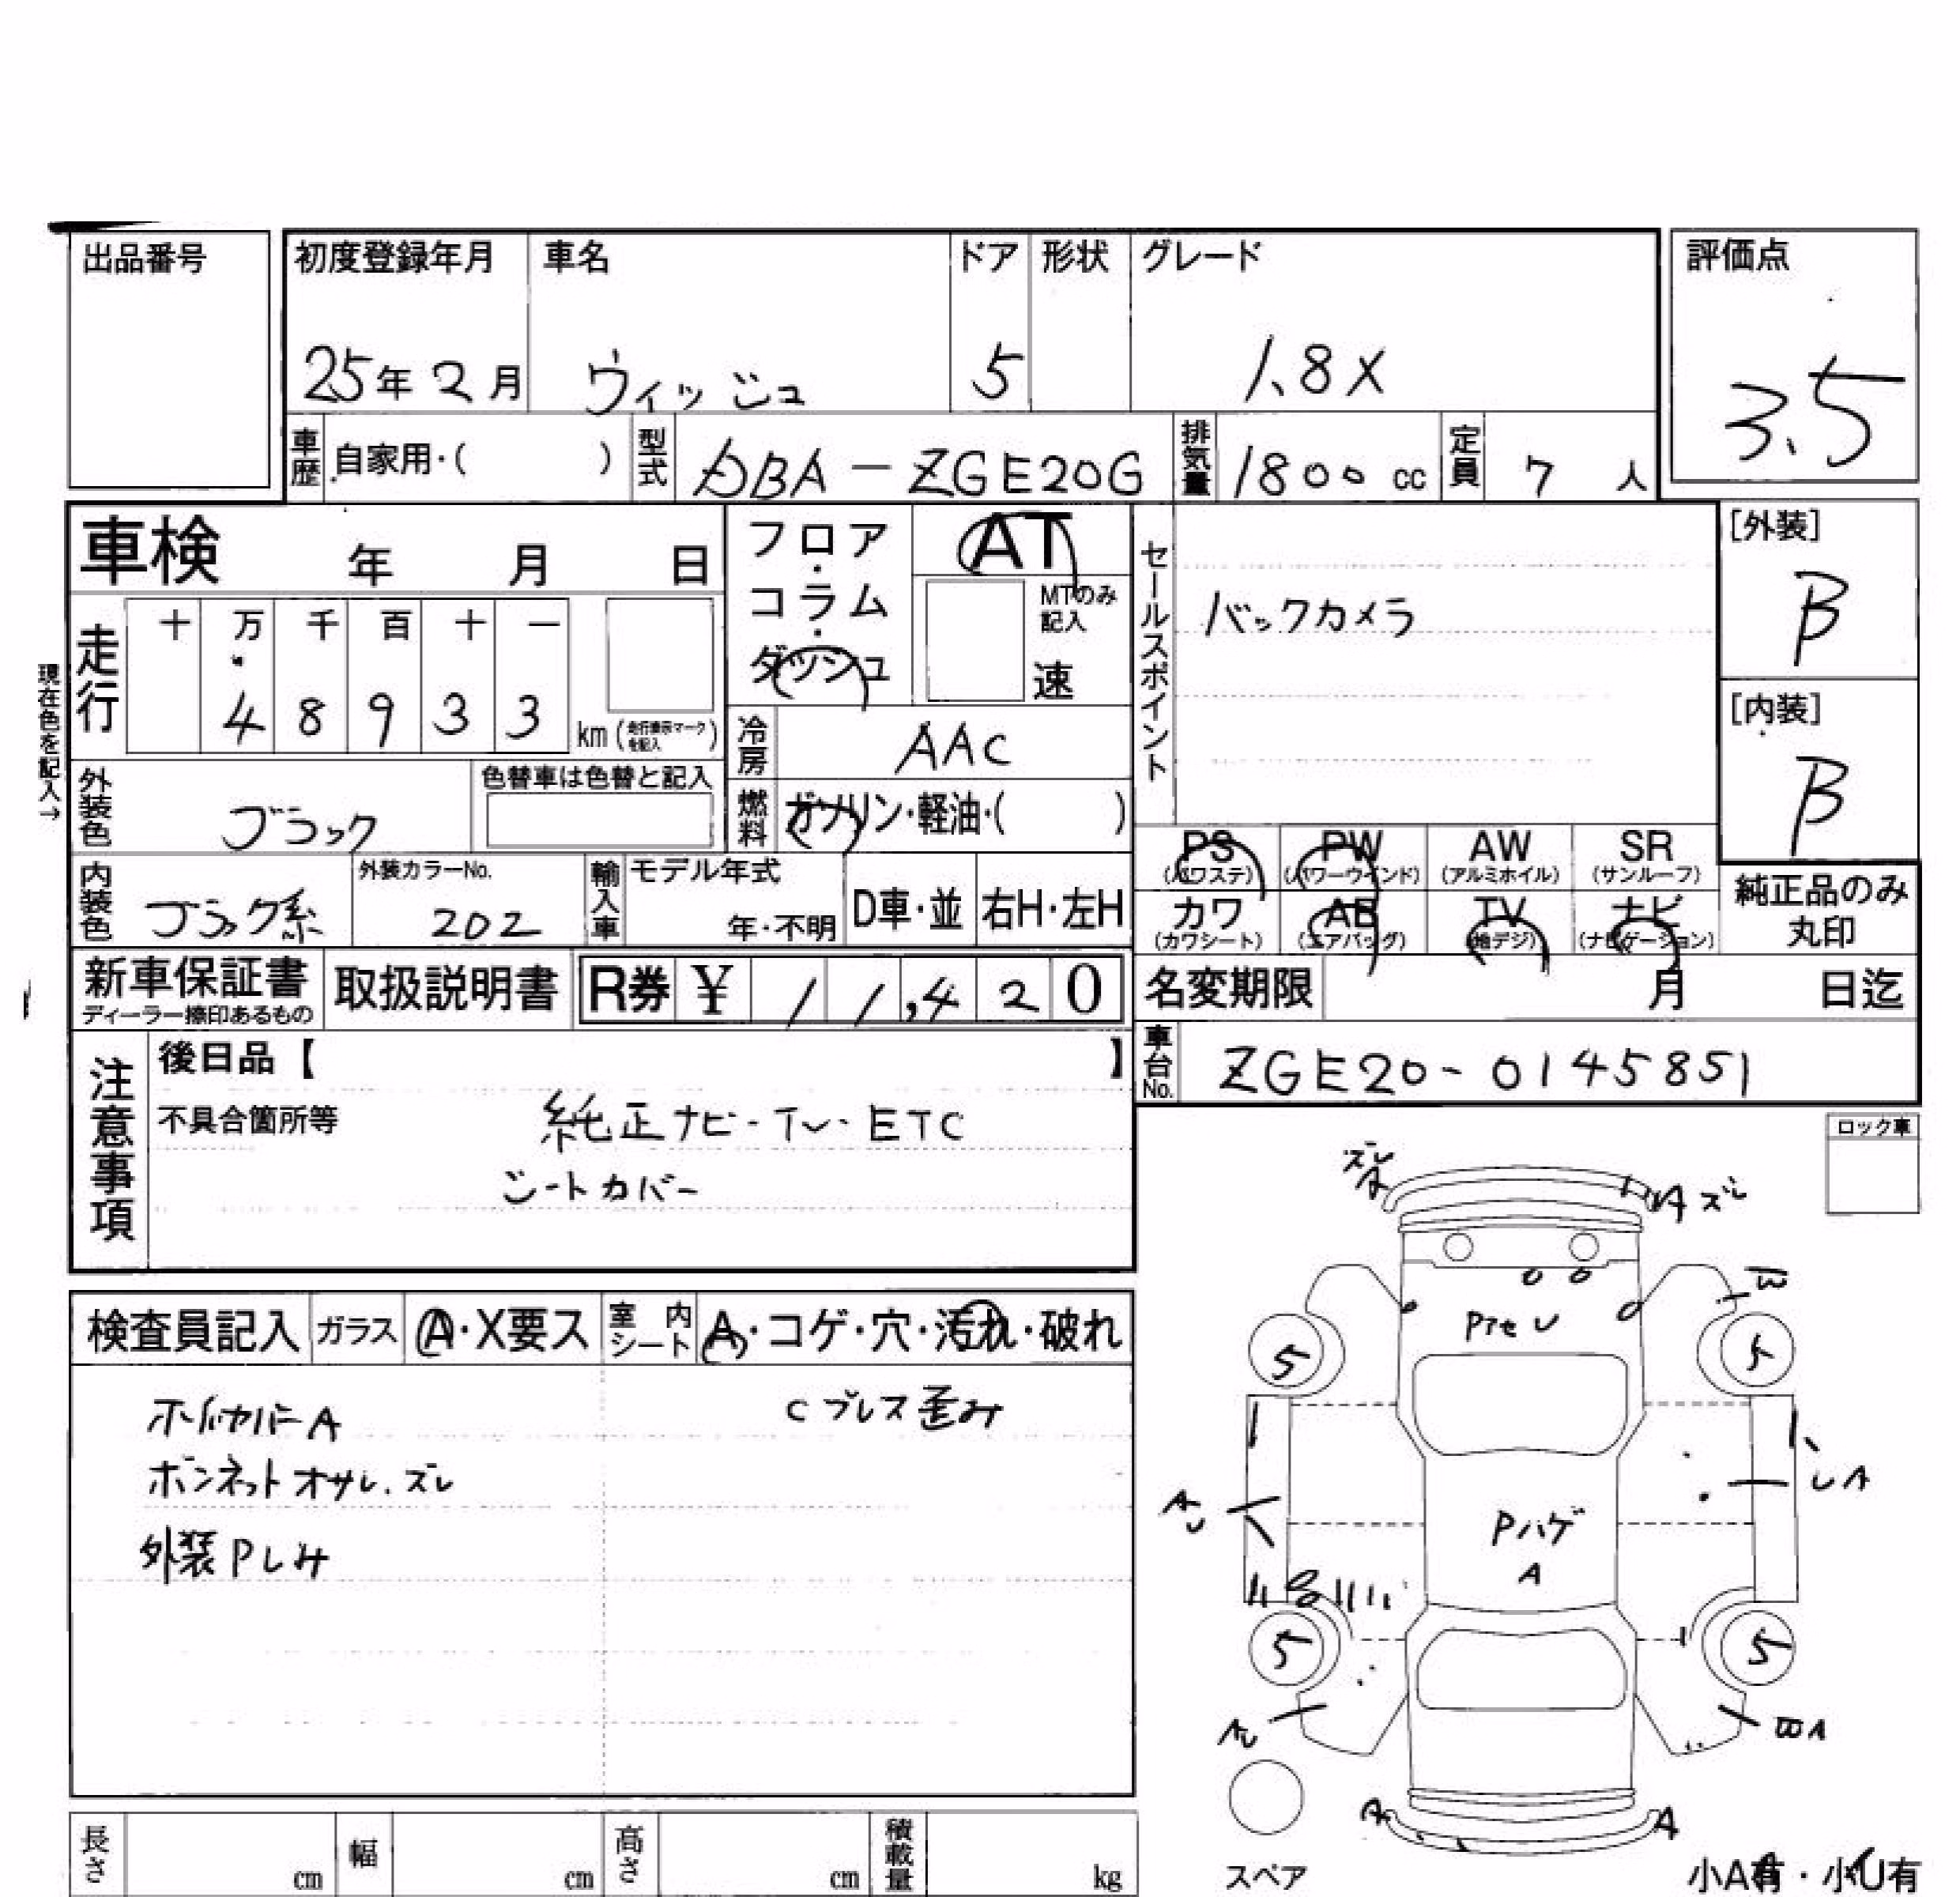 出品番号
初度登録年月 車名 ドア 形状 グレード 評価点
25年2月 ウィッシュ 5 1.8X
3.5
車歴 自家用・( ) 型式 DBA-ZGE20G 排気量 1800cc 定員 7人
車検 年 月 日
フロア・コラム・ダッシュ
AT
MTのみ記入
速
セールスポイント
バックカメラ
[外装]
B
[内装]
B
現在色を記入→
走行 十 万 千 百 十 一
4 8 9 3 3 km
冷房 AAC
外装色 ブラック 色替車は色替と記入
燃料 ガソリン・軽油・( )
PS PW AW SR
(パワステ) (パワーウインド) (アルミホイル) (サンルーフ)
カワ AB TV ナビ
(カワシート) (エアバッグ) (地デジ) (ナビゲーション)
純正品のみ
丸印
内装色 ブラック系 外装カラーNo. 202 輸入車 モデル年式 年・不明 D車・並 右H・左H
新車保証書 取扱説明書 R券 ¥ 11,420
ディーラー捺印あるもの
名変期限 月 日迄
車台No. ZGE20-0145851
注意事項
後日品【 】
不具合箇所等 純正ナビ・TV・ETC
シートカバー
ロック車
検査員記入 ガラス A・X要ス 室内シート A・コゲ・穴・汚れ・破れ
ホイルカバーA Cプレス歪み
ボンネットオサレ、ズレ
外装Pしみ
ズレ
A
A ズレ
5 5
Pハゲ
A
A
5 5
A A
スペア
小A有・小U有
長さ cm 幅 cm 高さ cm 積載量 kg